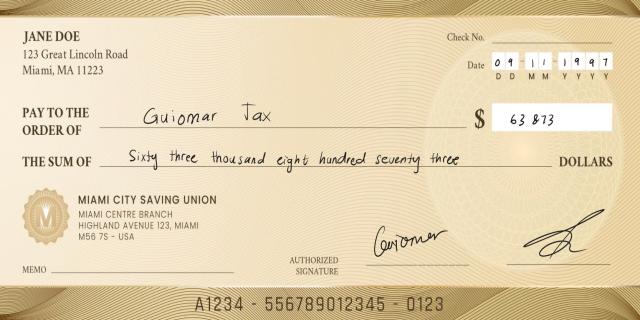 JANE DOE
123 Great Lincoln Road
Miami, MA 11223
Check No.
Date 09 - 11 - 1997
D D M M Y Y Y Y
PAY TO THE ORDER OF Guiomar Tax $ 63 873
THE SUM OF Sixty three thousand eight hundred seventy three DOLLARS
M
MIAMI CITY SAVING UNION
MIAMI CENTRE BRANCH
HIGHLAND AVENUE 123, MIAMI
M56 7S - USA
MEMO
AUTHORIZED
SIGNATURE
Guiomar
A1234 - 556789012345 - 0123